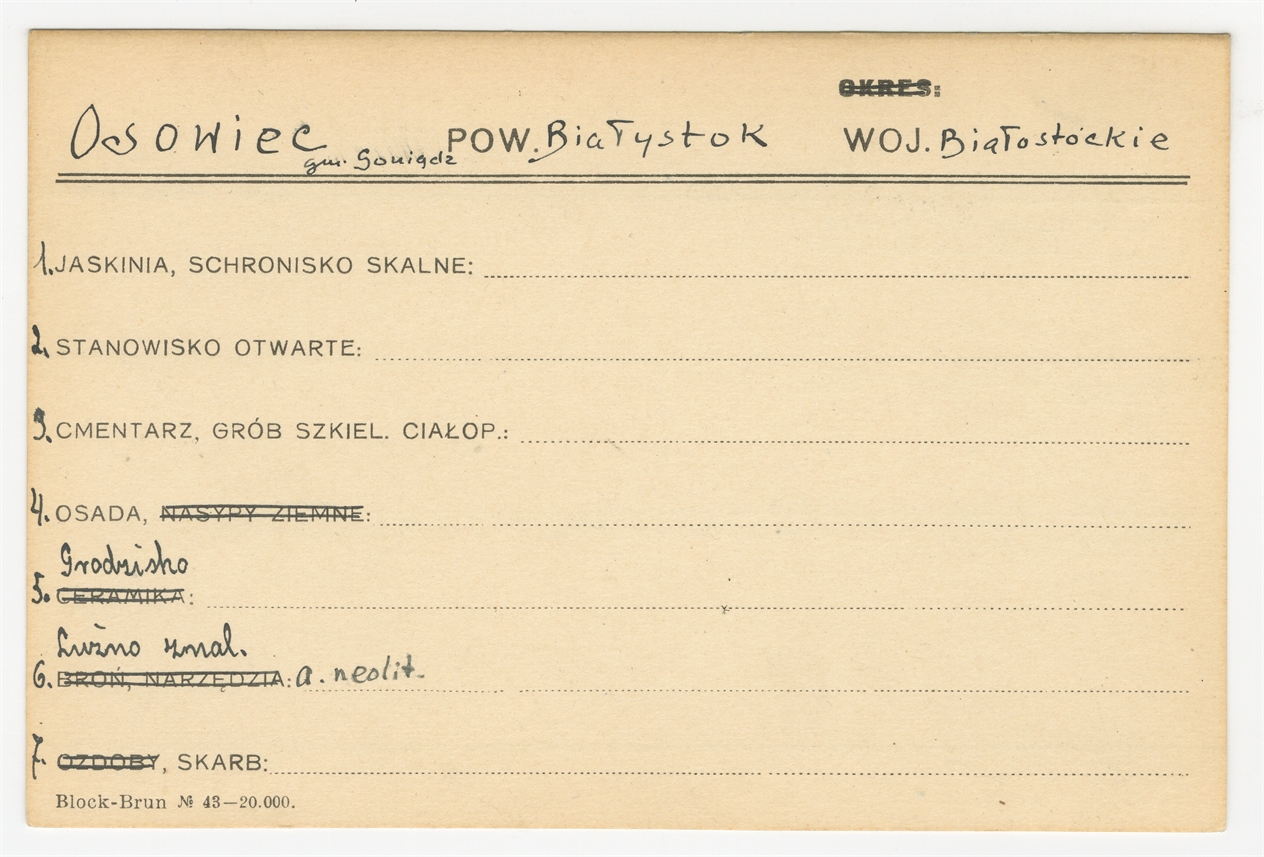 OKRES:
Osowiec POW. Białystok WOJ. Białostockie
gm. Goniądz
1. JASKINIA, SCHRONISKO SKALNE:
2. STANOWISKO OTWARTE:
3. CMENTARZ, GRÓB SZKIEL. CIAŁOP.:
4. OSADA, NASYPY ZIEMNE:
Grodzisko
5. CERAMIKA:
Luźno znal.
6. BROŃ, NARZĘDZIA: a. neolit.
7. OZDOBY, SKARB:
Block-Brun № 43—20.000.